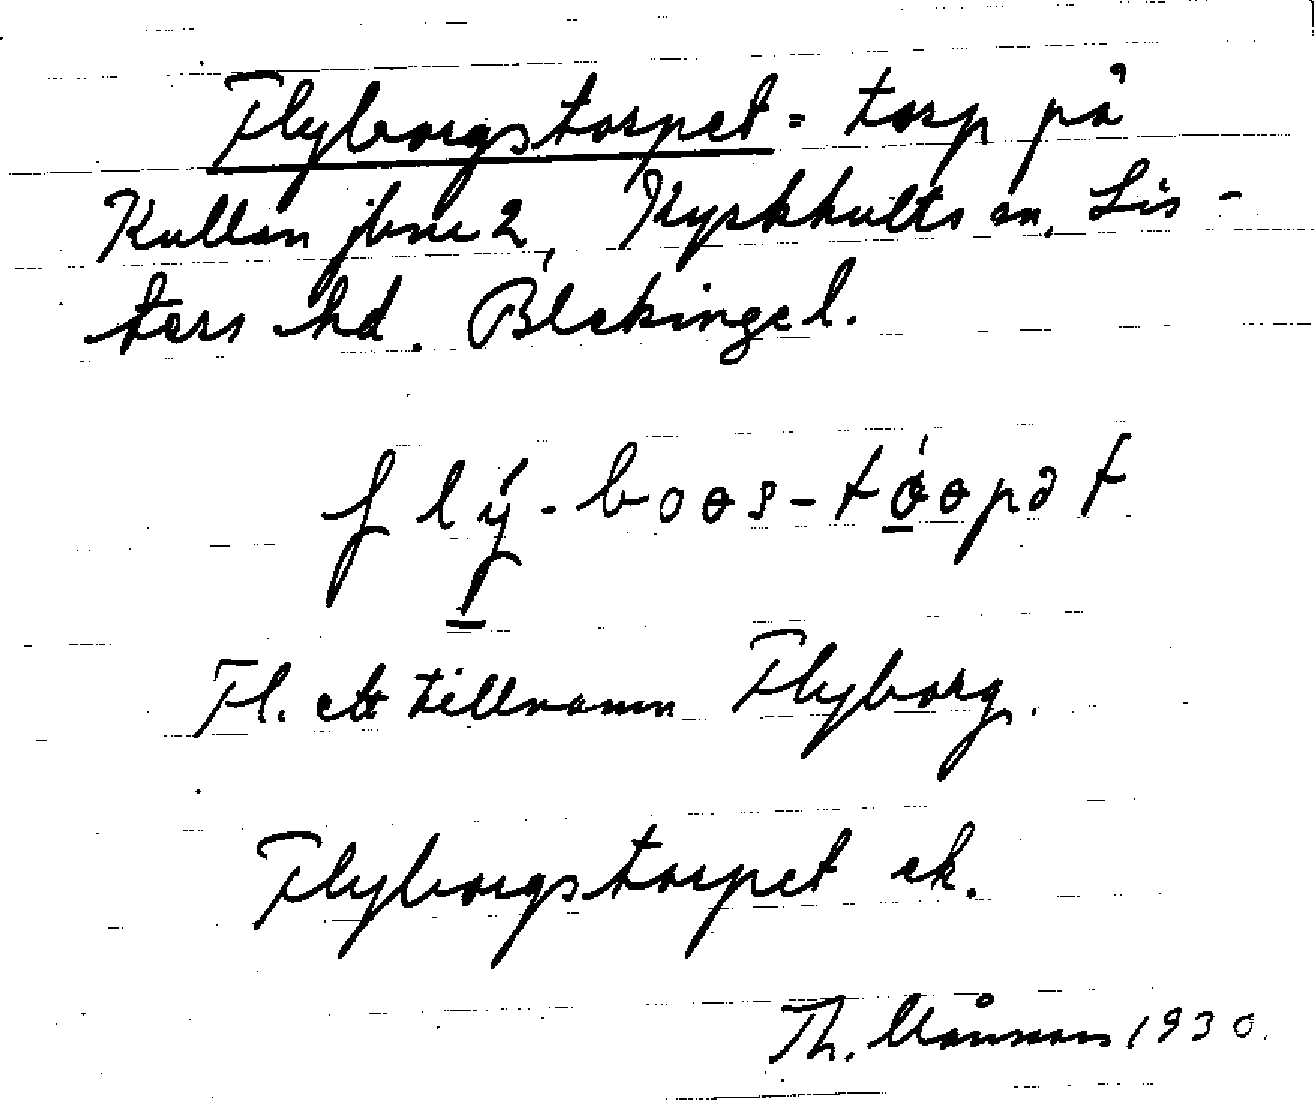 Flyborgstorpet = torp på
Kullan jbnr 2, Kyrkhults sn, Lis-
ters hd. Blekinge l.
flý-boɵs-tóɵpət
Fl. ett tillnamn Flyborg.
Flyborgstorpet ek.
Th. 1930.